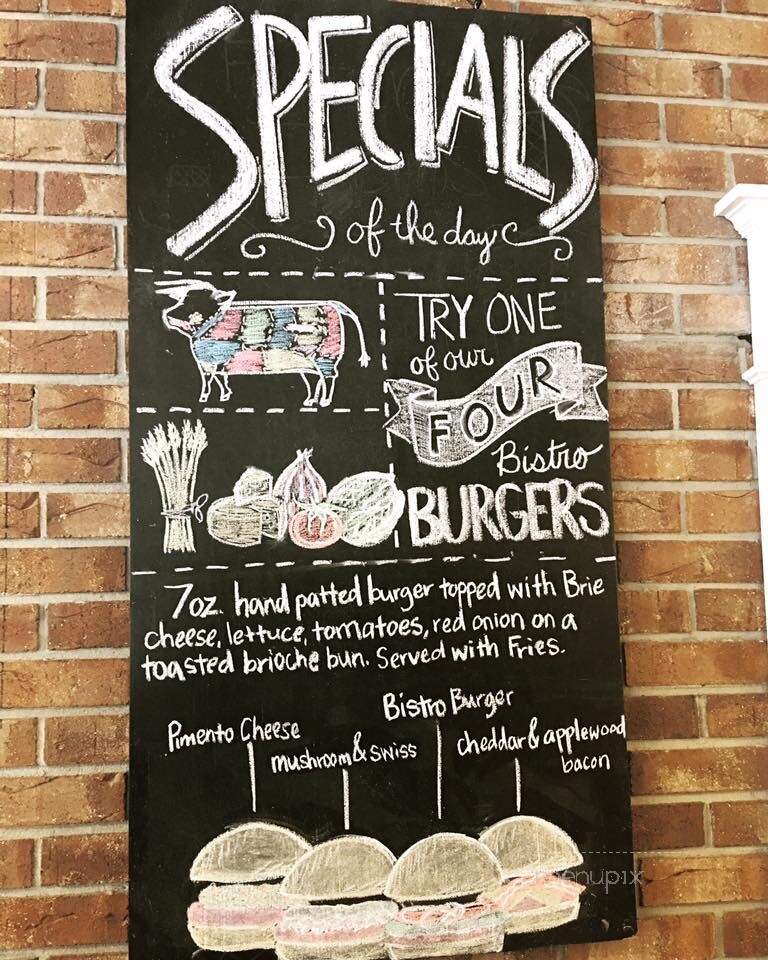 SPECIALS
of the day
TRY ONE
of our
FOUR
Bistro
BURGERS
7oz. hand patted burger topped with Brie
cheese, lettuce, tomatoes, red onion on a
toasted brioche bun. Served with Fries.
Bistro Burger
Pimento Cheese
mushroom & swiss
cheddar & applewood
bacon
menupix